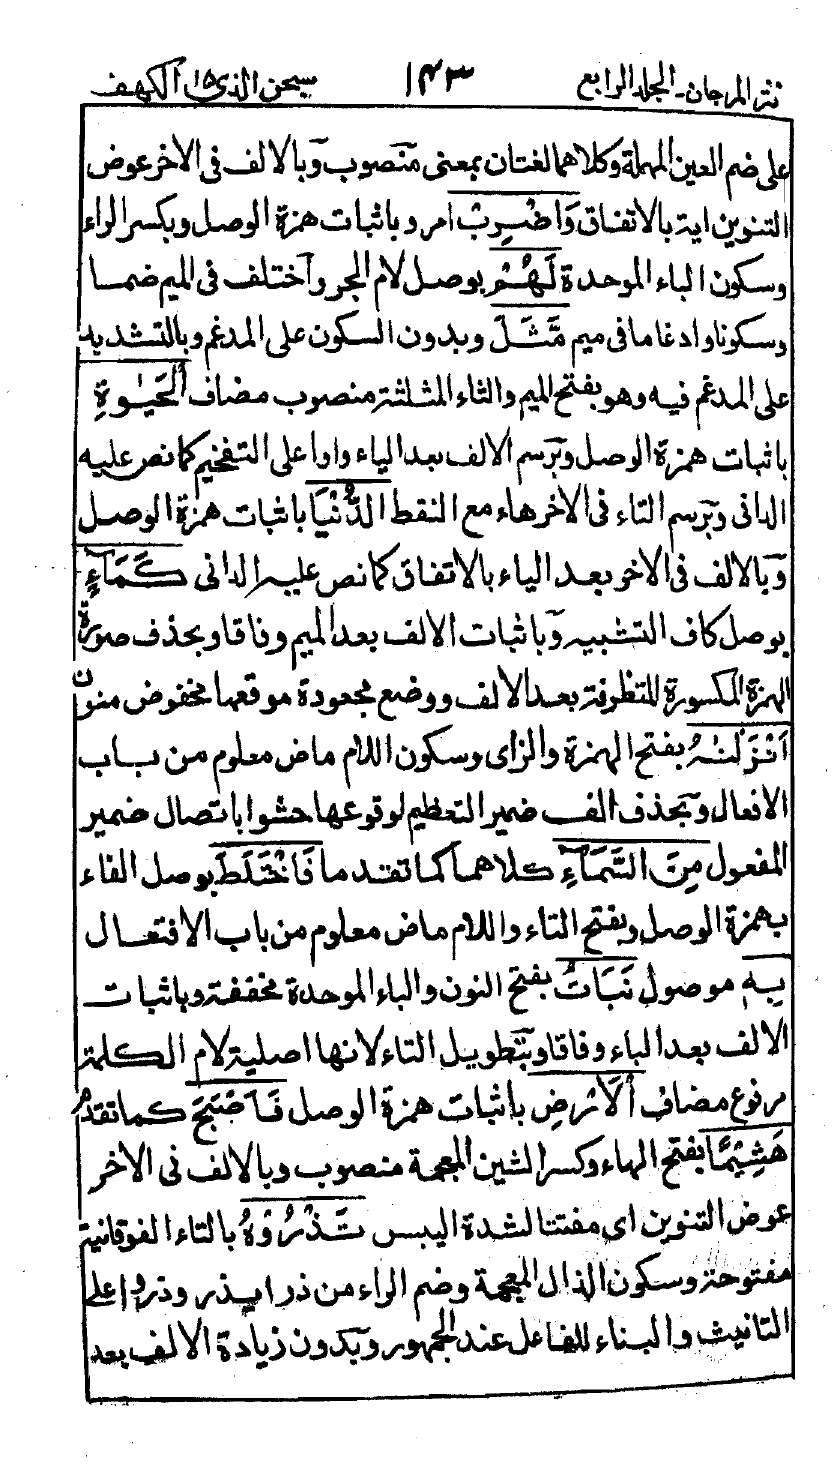 نثر المرجان۔ الجلد الرابع ١٤٣ سبحن الذي ١٥ الكهف
على ضم العين المهملة وكلاهما لغتان بمعنى منصوب وبالالف فى الاخر عوض
التنوين اية بالاتفاق وَاضْرِبْ امر وباثبات همزة الوصل وبكسر الراء
وسكون الباء الموحدة لَهُمْ بوصل لام الجر واختلف فى الميم ضما
وسكونا وادغاما فى ميم مَّثَلَ وبدون السكون على المدغم وبالتشديد
على المدغم فيه وهو بفتح الميم والثاء المثلثة منصوب مضاف الْحَيٰوةِ
باثبات همزة الوصل وبرسم الالف بعد الياء واوا على التفخيم كما نص عليه
الدانى وبرسم التاء فى الاخر هاء مع النقط الدُّنْيَا باثبات همزة الوصل
وبالالف فى الاخر بعد الياء بالاتفاق كما نص عليه الدانى كَمَآءٍ
بوصل كاف التشبيه وباثبات الالف بعد الميم وفاقا وبحذف صورة
الهمزة المكسورة المتطرفة بعد الالف ووضع مجعودة موقعها مخفوض منون
اَنْزَلْنٰهُ بفتح الهمزة والزاى وسكون اللام ماض معلوم من باب
الافعال وبحذف الف ضمير التعظيم لوقوعها حشوا باتصال ضمير
المفعول مِنَ السَّمَآءِ كلاهما كما تقدما فَاخْتَلَطَ بوصل الفاء
بهمزة الوصل وبفتح التاء واللام ماض معلوم من باب الافتعال
بِهٖ موصول نَبَاتُ بفتح النون والباء الموحدة مخففة وباثبات
الالف بعد الباء وفاقا وبتطويل التاء لانها اصلية لام الكلمة
مرفوع مضاف الْاَرْضِ باثبات همزة الوصل فَاَصْبَحَ كما تقدم
هَشِيْمًا بفتح الهاء وكسر الشين المعجمة منصوب وبالالف فى الاخر
عوض التنوين اى مفتتا لشدة اليبس تَذْرُوْهُ بالتاء الفوقانية
مفتوحة وسكون الذال المعجمة وضم الراء من ذرا يذر وذروا على
التانيث والبناء للفاعل عند الجمهور وبدون زيادة الالف بعد